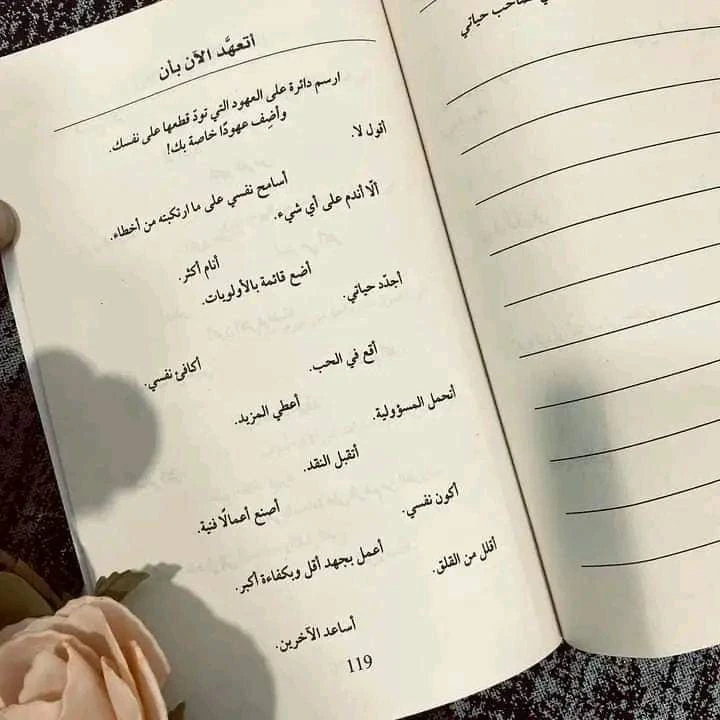 أتعهَّد الآن بأن
ارسم دائرة على العهود التي تودّ قطعها على نفسك.
وأضِف عهودًا خاصة بك!
أقول لا.
ألّا أندم على أي شيء.
أسامح نفسي على ما ارتكبته من أخطاء.
أنام أكثر.
أضع قائمة بالأولويات.
أجدّد حياتي.
أقع في الحب.
أكافئ نفسي.
أتحمل المسؤولية.
أعطي المزيد.
أتقبل النقد.
أكون نفسي.
أصنع أعمالًا فنية.
أقلل من القلق.
أعمل بجهد أقل وبكفاءة أكبر.
أساعد الآخرين.
119
حياتي